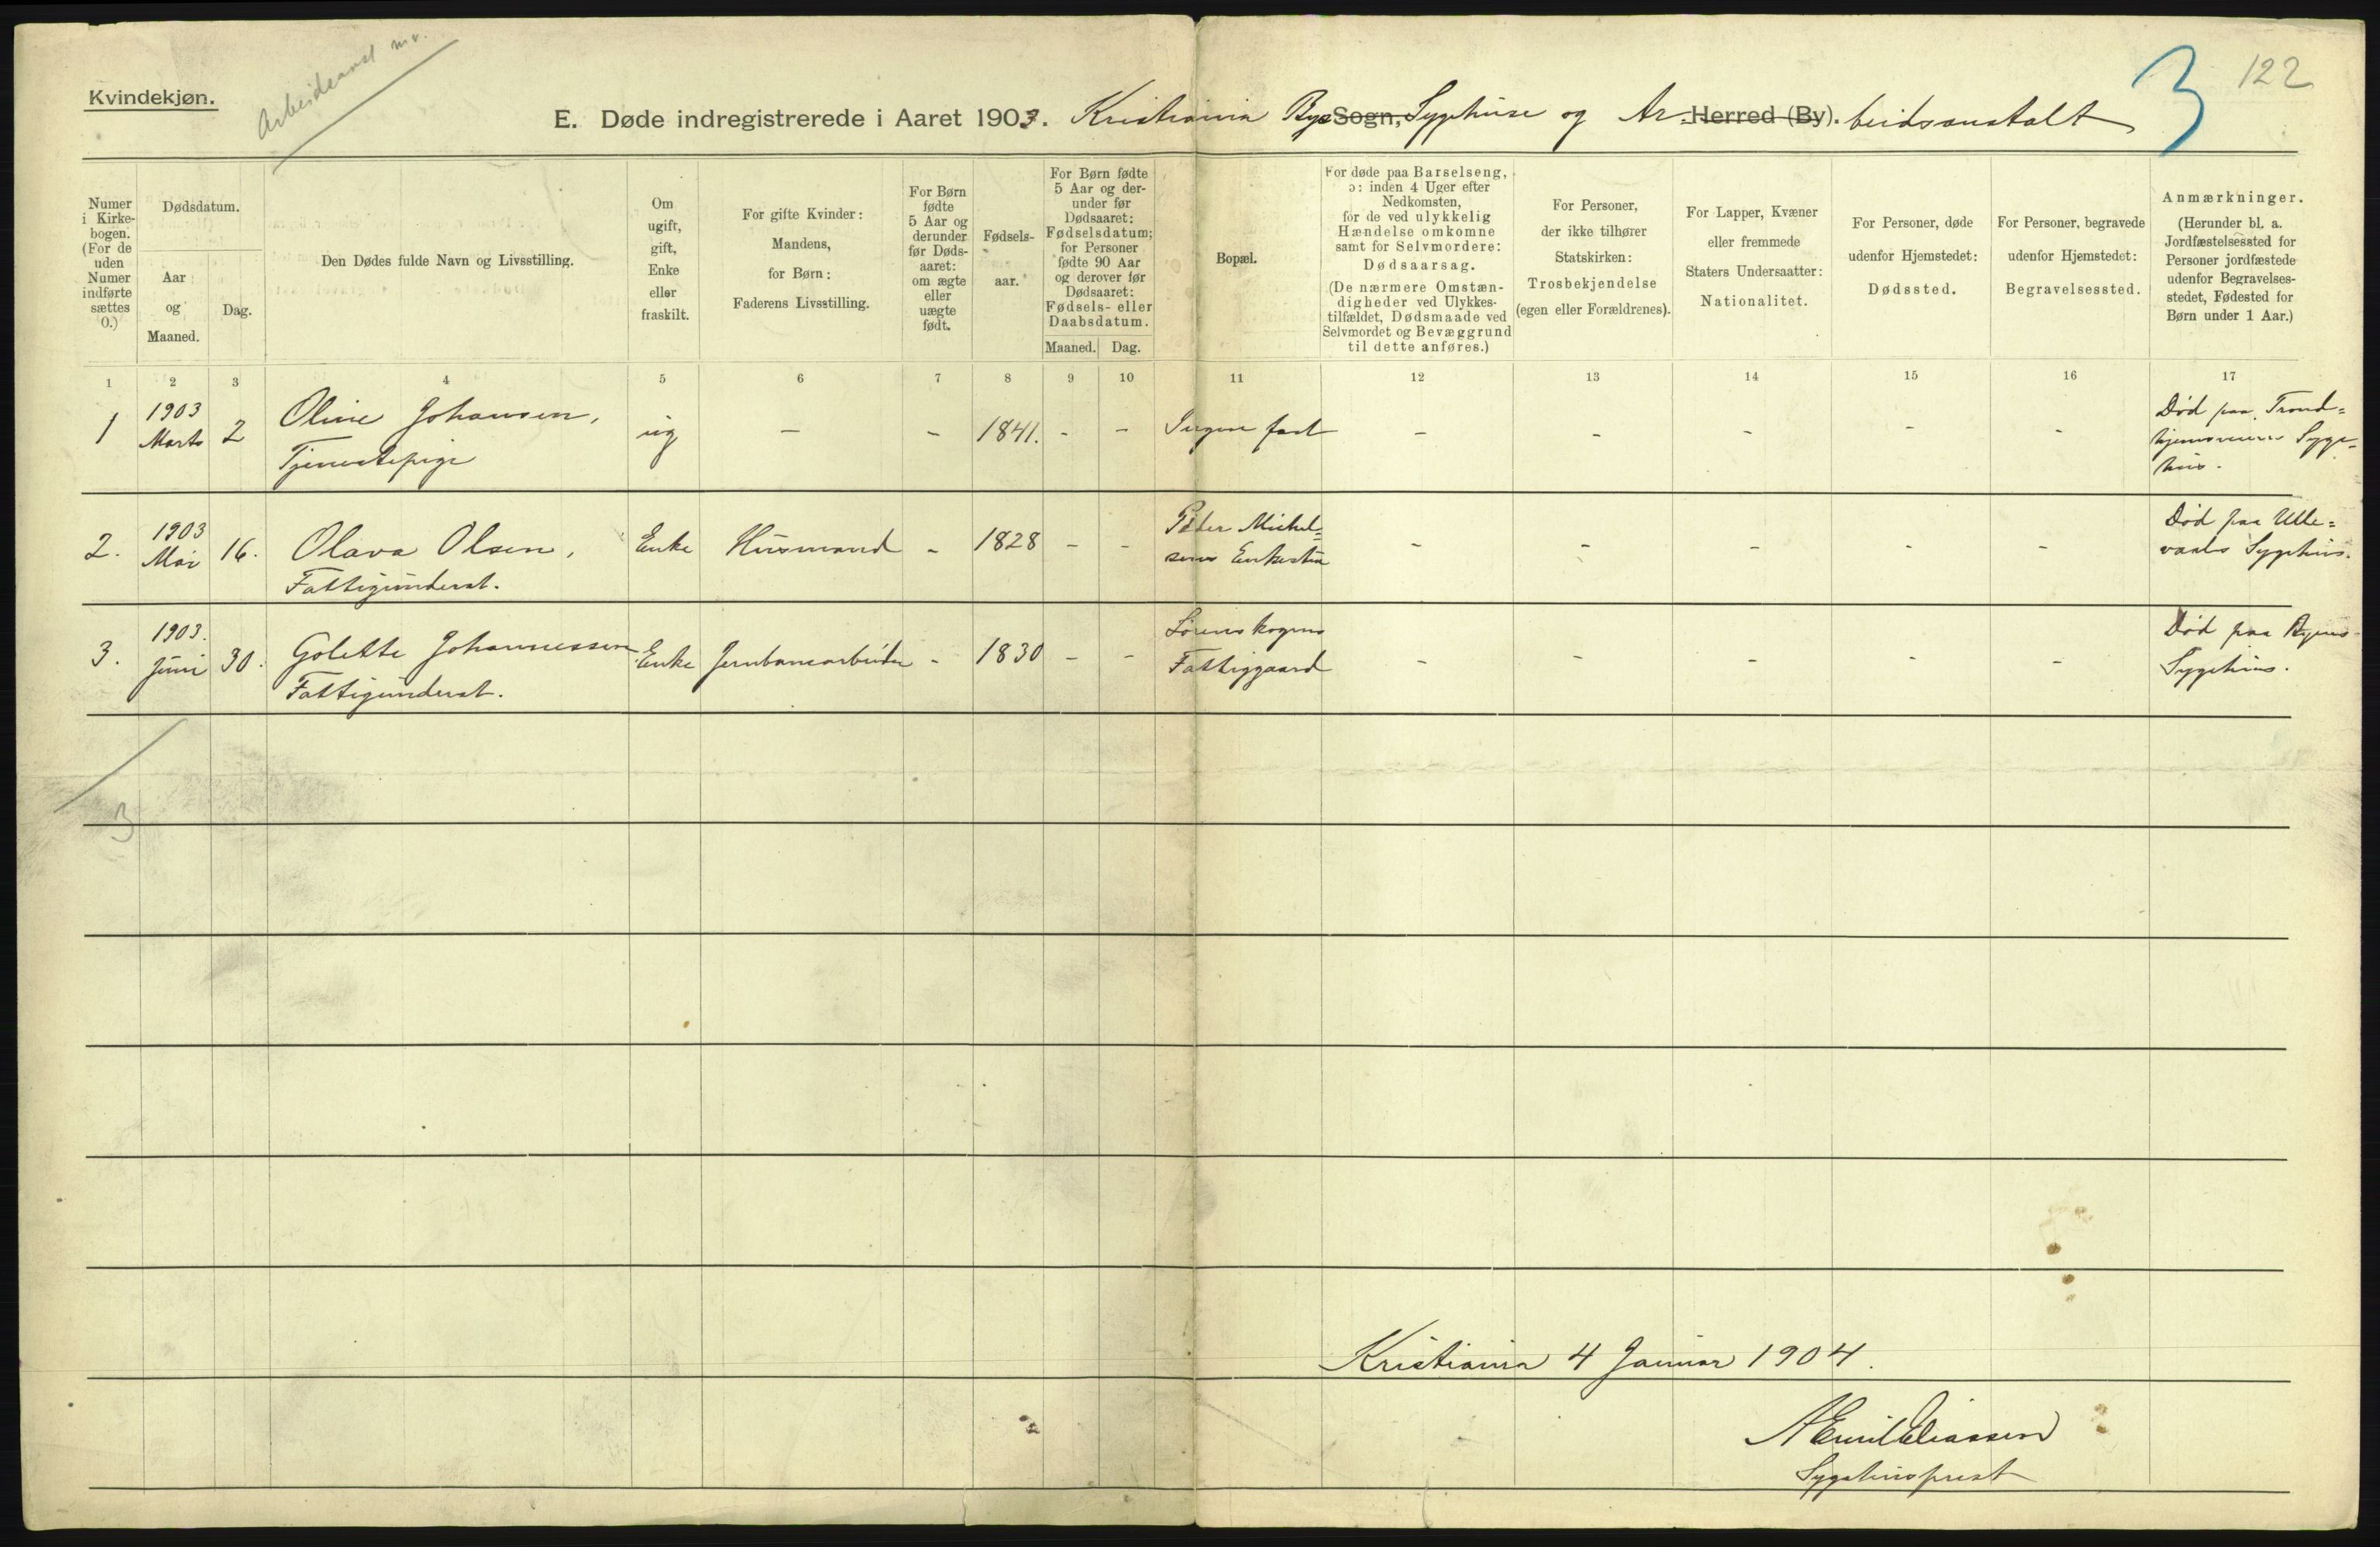 Kvindekjøn.
Arbeidsanst m.v.
E. Døde indregistrerede i Aaret 1903. Kristiania Bys Sogn, Sygehuse og Ar- Herred (By). beidsanstalt
3
122
Numer i Kirke-bogen. (For de uden Numer indførte sættes 0.)
Dødsdatum.
Aar og Maaned.
Dag.
Den Dødes fulde Navn og Livsstilling.
Om ugift, gift, Enke eller fraskilt.
For gifte Kvinder: Mandens, for Børn: Faderens Livsstilling.
For Børn fødte 5 Aar og derunder før Døds-aaret: om ægte eller uægte født.
Fødsels-aar.
For Børn fødte 5 Aar og der-under før Dødsaaret: Fødselsdatum; for Personer fødte 90 Aar og derover før Dødsaaret: Fødsels- eller Daabsdatum.
Maaned. Dag.
Bopæl.
For døde paa Barselseng, ɔ: inden 4 Uger efter Nedkomsten, for de ved ulykkelig Hændelse omkomne samt for Selvmordere: Dødsaarsag. (De nærmere Omstæn-digheder ved Ulykkes-tilfældet, Dødsmaade ved Selvmordet og Bevæggrund til dette anføres.)
For Personer, der ikke tilhører Statskirken: Trosbekjendelse (egen eller Forældrenes).
For Lapper, Kvæner eller fremmede Staters Undersaatter: Nationalitet.
For Personer, døde udenfor Hjemstedet: Dødssted.
For Personer, begravede udenfor Hjemstedet: Begravelsessted.
Anmærkninger. (Herunder bl. a. Jordfæstelsessted for Personer jordfæstede udenfor Begravelses-stedet, Fødested for Børn under 1 Aar.)
1 2 3 4 5 6 7 8 9 10 11 12 13 14 15 16 17
1 1903 Marts 2 Oline Johansen, Tjenestepige ug - - 1841. - - Ingen fast - - - - - Død paa Trond=hjemsveiens Syge=hus.
2. 1903 Mai 16. Olava Olsen, Fattigunderst. Enke Husmand - 1828 - - Peder Michel=sens Enkestue - - - - - Død paa Ulle=vaals Sygehus.
3. 1903. Juni 30. Golette Johannessen Fattigunderst. Enke Jernbanearbeider - 1830 - - Lørenskogens Fattiggaard - - - - - Død paa Byens Sygehus.
3
Kristiania 4 Januar 1904.
A Emil Eliassen
Sygehusprest